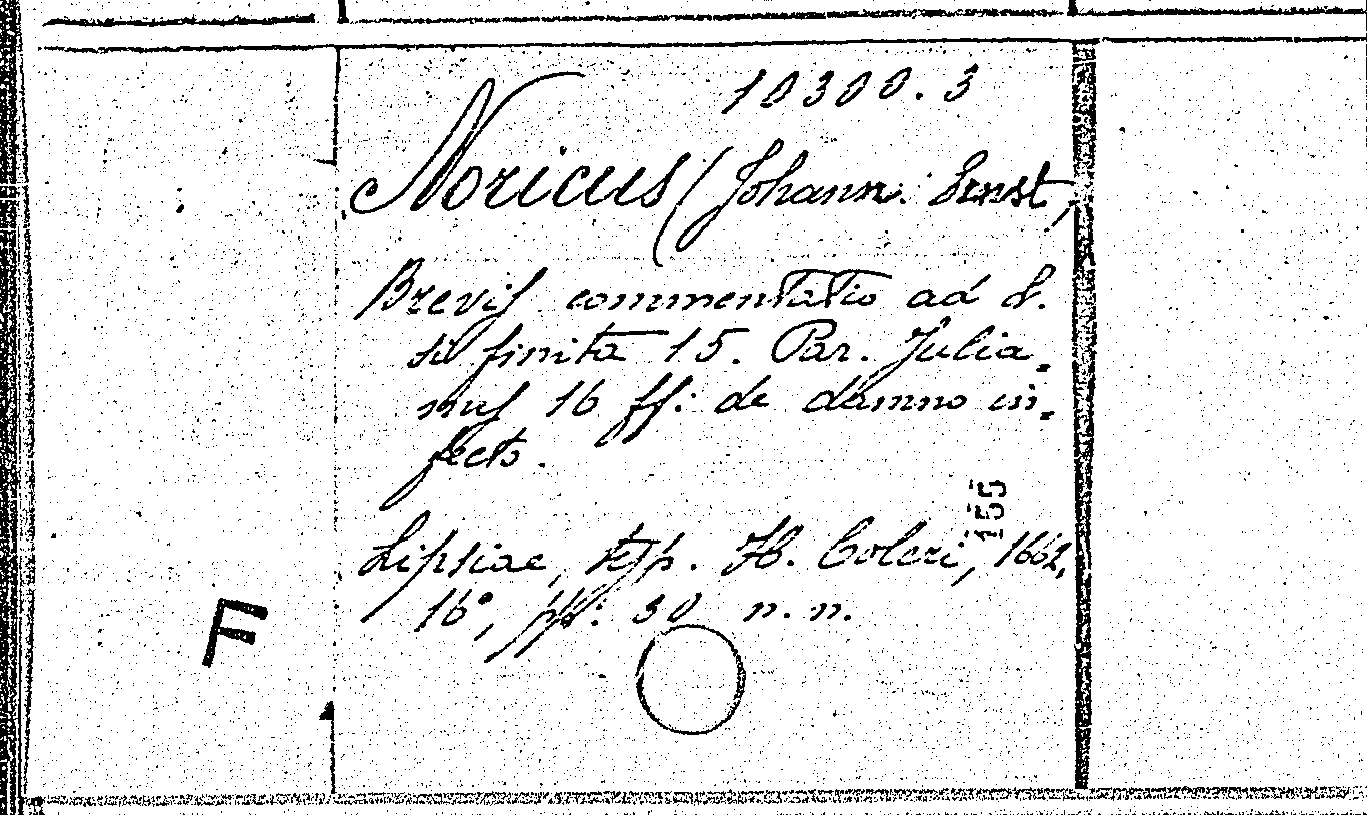 10300.3
Noricus (Johann. Ernst,
Brevis commentatio ad L.
si finita 15. Par. Julia-
nus 16 ff: de damno in-
fecto.
155
Lipsiae, typ. H. Coleri, 1662,
16°, pp: 30 n. n.
F